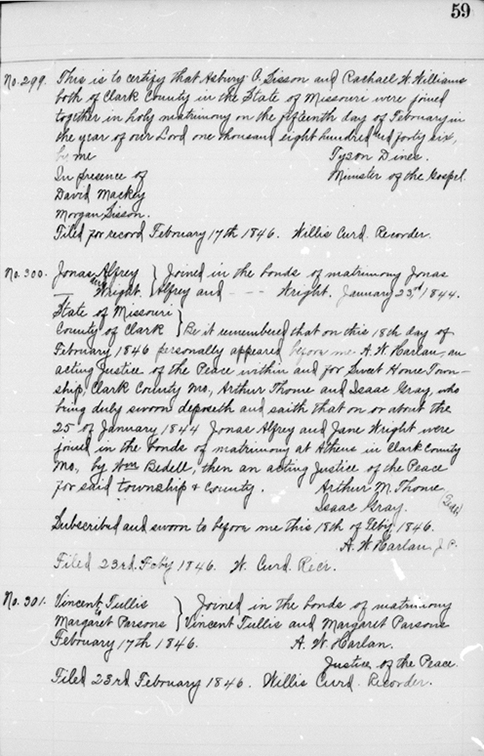 59
No. 299. This is to certify that Asbury O. Sisson and Rachael W. Williams
both of Clark County in the State of Missouri were joined
together in holy matrimony on the fifteenth day of February in
the year of our Lord one thousand eight hundred and forty six,
by me Tyson Dines.
In presence of Minister of the Gospel.
David Mackey
Morgan Sisson.
Filed for record February 17th 1846. Willis Curd. Recorder.
No. 300. Jonas Alfrey } Joined in the bonds of matrimony Jonas
— Wright. } Alfrey and - - - Wright. January 25th 1844.
State of Missouri }
County of Clark } Be it remembered that on this 18th day of
February 1846 personally appeared before me A. W. Harlan, an
acting Justice of the Peace within and for Sweet Home Town-
ship, Clark County Mo., Arthur Thome and Isaac Gray, who
being duly sworn deposeth and saith that on or about the
25 of January 1844 Jonas Alfrey and Jane Wright were
joined in the bonds of matrimony at Athens in Clark County
Mo., by Wm Bedell, then an acting Justice of the Peace
for said township & County. Arthur M. Thome
Isaac Gray. (Seal)
Subscribed and sworn to before me this 18th of Feby 1846.
A. W. Harlan J.P.
Filed 23rd. Feby 1846. W. Curd. Recr.
No. 301. Vincent Tullis } Joined in the bonds of matrimony
Margaret Parsons } Vincent Tullis and Margaret Parsons
February 17th 1846. A. W. Harlan.
Justice of the Peace.
Filed 23rd February 1846. Willis Curd. Recorder.